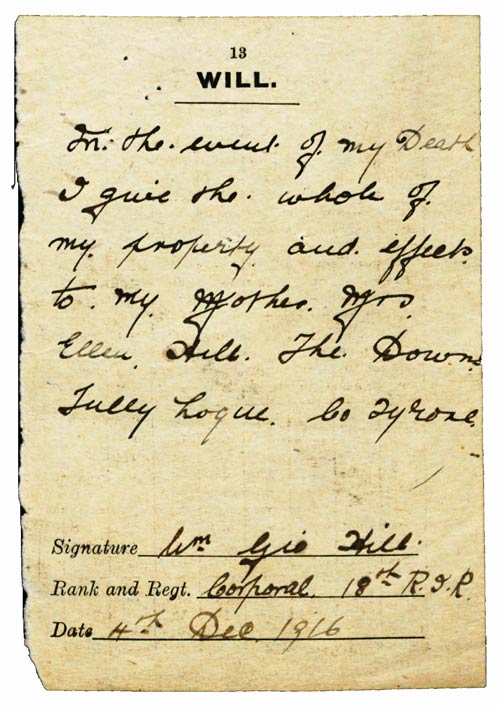 13
WILL.
In. the. event. of. my Death
I give the. whole of.
my. property and. effects.
to. my. Mother. Mrs
Ellen. Hill. The. Downs
Tully Logue. Co Tyrone.
Signature Wm Geo Hill.
Rank and Regt. Corporal. 18th R.I.R.
Date 4th Dec. 1916